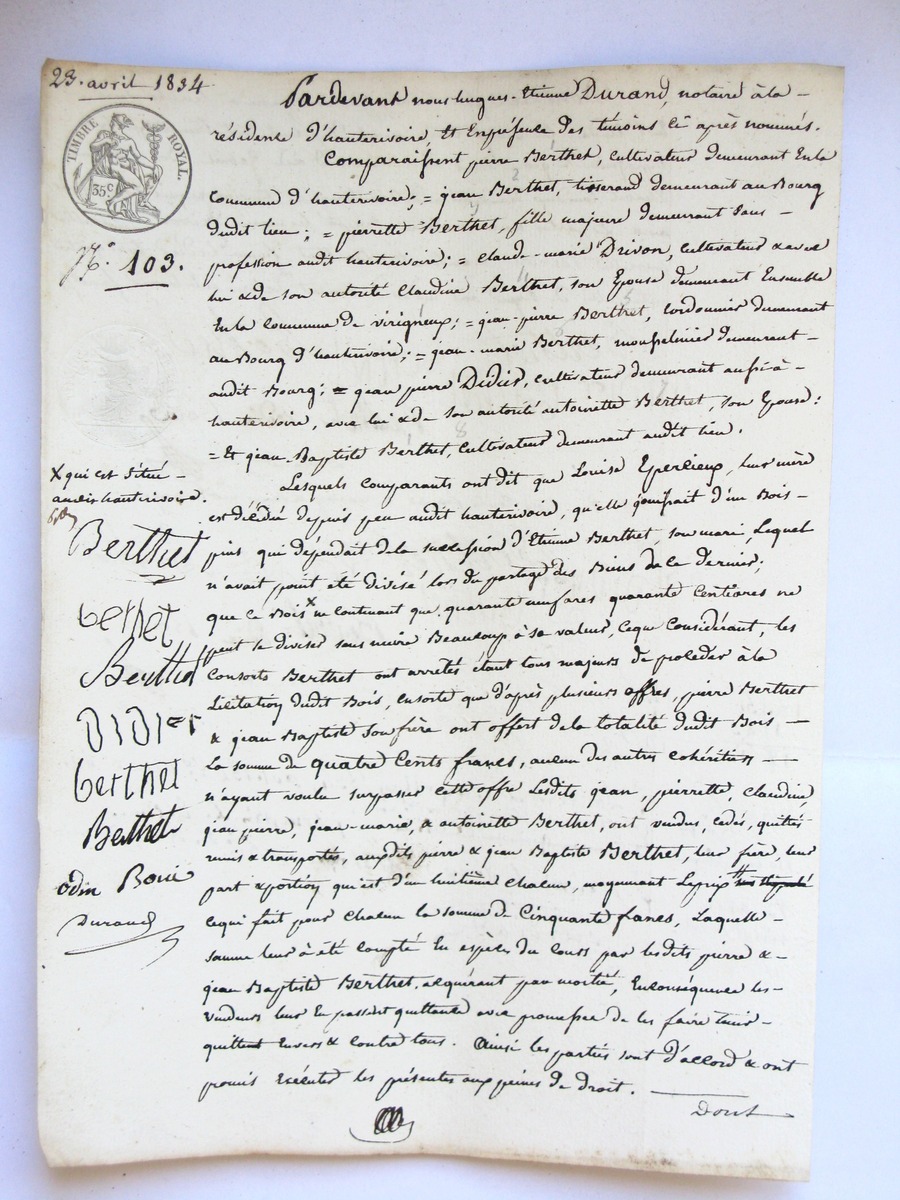 23. avril 1834
TIMBRE ROYAL.
35 c
N.° 103.
Pardevant nous hugues-Etienne Durand, notaire à la
résidence d'hauterivoire, Et En présence des témoins ci après nommés.
Comparaissent pierre Berthet, cultivateur demeurant En la
commune d'hauterivoire; = jean Berthet, tisserand demeurant au Bourg
dudit lieu; = pierrette Berthet, fille majeure demeurant sans
profession audit hauterivoire; = claude-marie Drivon, cultivateur & avec
lui & de son autorité Claudine Berthet, son Epouse demeurant Ensemble
En la commune de virigneux; = jean-pierre Berthet, cordonnier demeurant
au Bourg d'hauterivoire; = jean-marie Berthet, mousselinier demeurant
audit Bourg; = jean pierre Didier, cultivateur demeurant aussi à
hauterivoire, avec lui & de son autorité antoinette Berthet, son Epouse:
= Et jean-Baptiste Berthet, cultivateur demeurant audit lieu.
Lesquels comparants ont dit que Louise Epercieux, leur mère
est décédée depuis peu audit hauterivoire, qu'elle jouissait d'un Bois
pins qui dépendait de la succession d'Etienne Berthet, son mari, Lequel
n'avait point été divisé lors du partage des Biens de ce dernier;
que ce Bois x ne contenant que quarante neuf ares quarante Centiares ne
peut se diviser sans nuire Beaucoup à sa valeur, ce que Considérant, les
Consorts Berthet ont arrêtés étant tous majeurs de procéder à la
Licitation dudit Bois, ensorte que d'après plusieurs offres, pierre Berthet
& jean Baptiste son frère ont offert de la totalité dudit Bois
La somme de quatre Cents francs, aucun des autres cohéritiers
n'ayant voulu surpasser cette offre Lesdits jean, pierrette, claudine,
jean pierre, jean-marie, & antoinette Berthet, ont vendus, cédés, quittés
remis & transportés, auxdits pierre & jean Baptiste Berthet, leur frère, leur
part & portion qui est d'un huitième chacun, moyennant Le prix
ce qui fait pour chacun la somme de Cinquante francs, Laquelle
somme leur à été compté En espèces du cours par lesdits pierre &
jean Baptiste Berthet. acquérant par moitié, En conséquence les
vendeurs leur En passent quittance avec promesse de les faire tenir
quittent Envers & contre tous. Ainsi les parties sont d'accord & ont
promis Exécuter les présentes aux peines de droit.
Dont
X qui est situé
audit hauterivoire.
Berthet
berthet
Berthet
DIDIer
berthet
Berthet
odin Boui
Durand